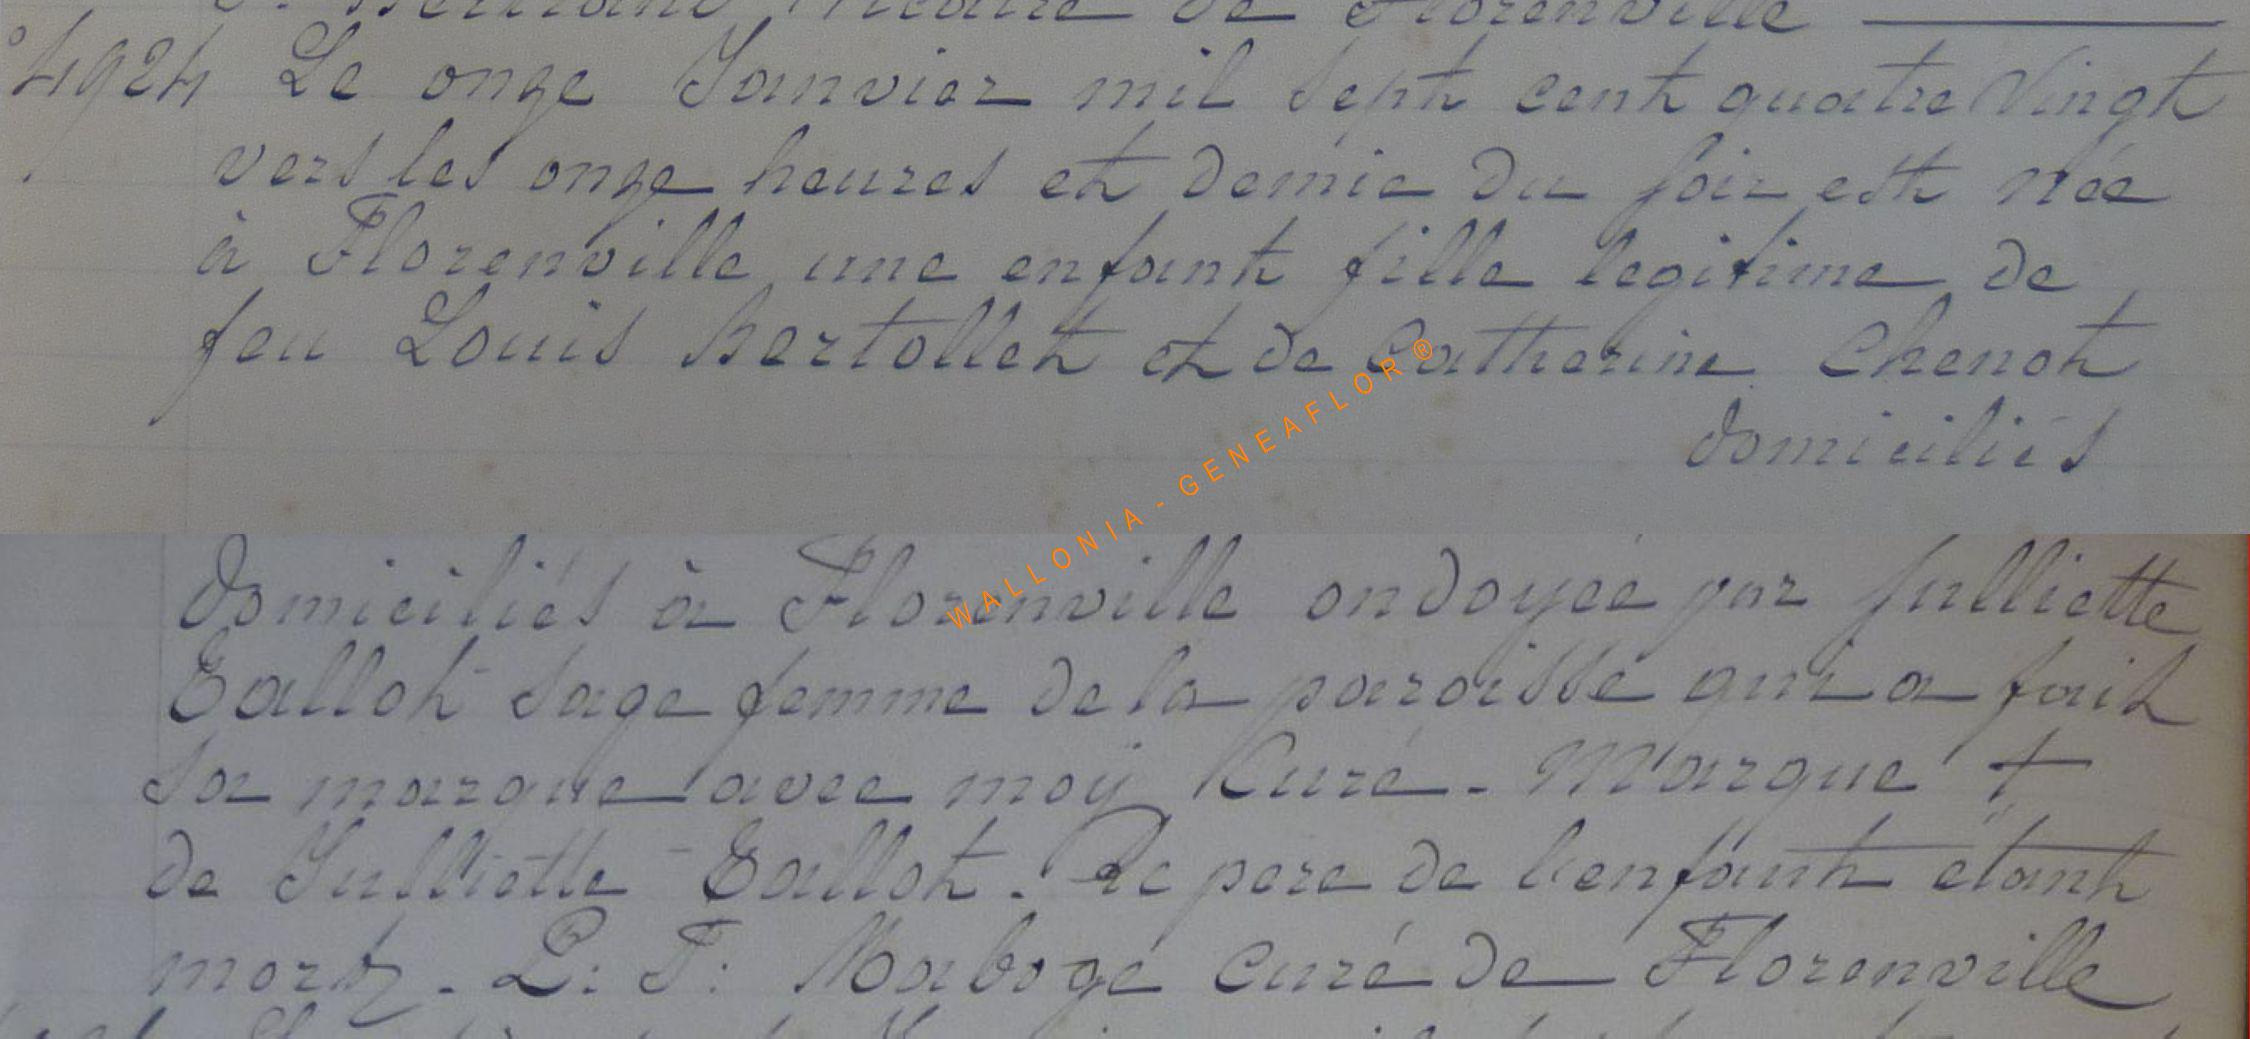 Bertrand Vicaire de Florenville
° 4924 Le onze Janvier mil sept cent quatre Vingt
vers les onze heures et demie du soir est née
à Florenville une enfant fille legitime de
feu Louis Bertollet et de Catherine Chenot
domiciliés
domiciliés à Florenville ondoyée par Julliette
Tallot sage femme de la paroisse qui a fait
sa marque avec moÿ Curé. Marque +
de Julliette Tallot. Le pere de l'enfant étant
mort. L: F: Maboge curé de Florenville
WALLONIA - GENEAFLOR ®